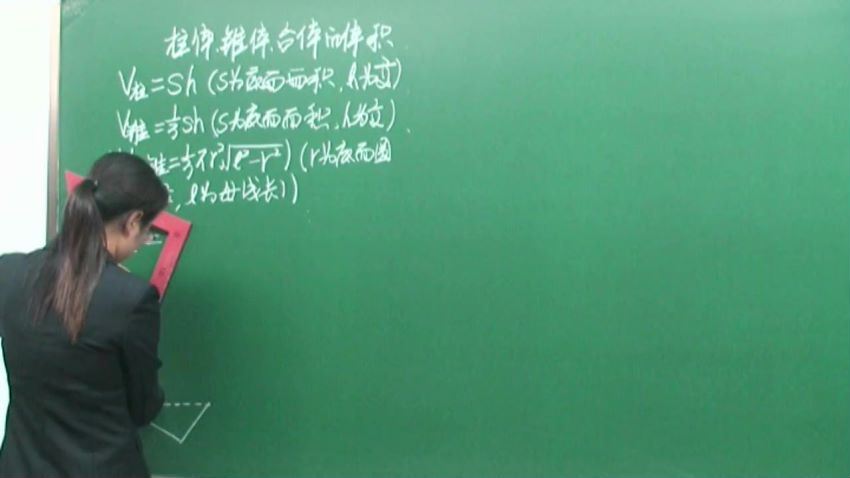 柱体、锥体、台体的体积
V柱=Sh(S为底面面积,h为高)
V锥=⅓Sh(S为底面面积,h为高)
锥=⅓πr²√(l²-r²))(r为底面圆
,l为母线长))